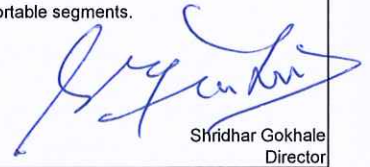 ortable segments.
Shridhar Gokhale
Director